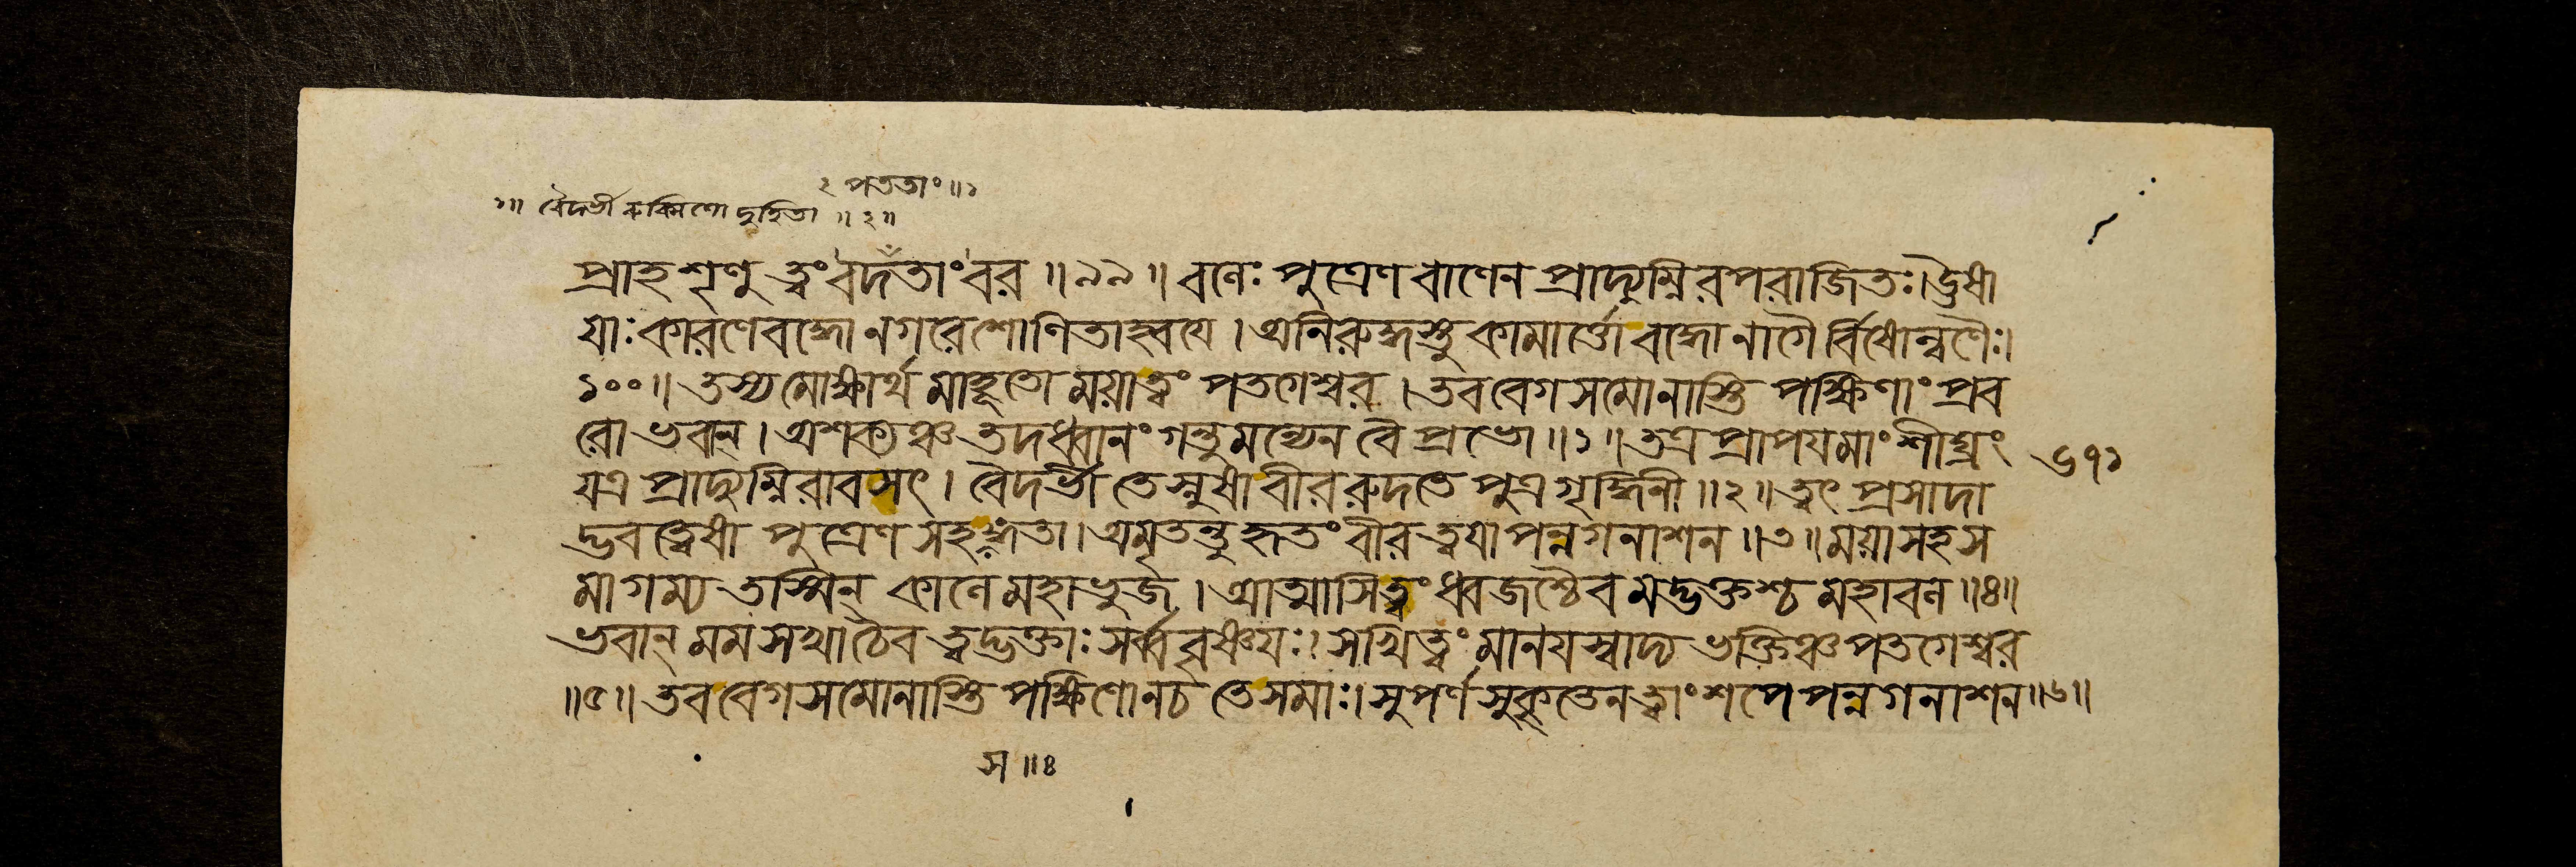 ২ পততাং॥১
১॥ বৈদর্ভী রুক্মিণো দুহিতা ॥২॥
প্রাহ শৃণু ত্বং বদতাং বর ॥৯৯॥ বলেঃ পুত্রেণ বাণেন প্রাদ্যুম্নিরপরাজিতঃ। উষা
যাঃ কারণে বদ্ধো নগরে শোণিতাহ্বয়ে। অনিরুদ্ধস্তু কামার্ত্তো বদ্ধো নাগৈর্বিষোল্বণৈঃ।
১০০॥ তস্য মোক্ষার্থমাহূতো ময়া ত্বং পতগেশ্বর। তব বেগসমো নাস্তি পক্ষিণাং প্রব
রো ভবান্। অশক্যঞ্চ তদধ্বানং গন্তুমন্যেন বৈ প্রভো॥১॥ তত্র প্রাপয় মাং শীঘ্রং
যত্র প্রাদ্যুম্নিরাবসৎ। বৈদর্ভী তে স্নুষা বীর রুদতে পুত্রগৃদ্ধিনী॥২॥ ত্বৎ প্রসাদা
দ্ভবত্বেষা পুত্রেণ সহ সঙ্গতা। অমৃতন্তু হৃতং বীর ত্বয়া পন্নগনাশন॥৩॥ ময়া সহ স
মাগম্য তস্মিন্ কালে মহাভুজ। আত্মাসি ত্বং ধ্বজশ্চৈব মদ্ভক্তশ্চ মহাবল॥৪॥
ভবান্ মম সখা চৈব ত্বদ্ভক্তাঃ সর্ব্ববৃষ্ণয়ঃ। সখিত্বং মানয়স্বাদ্য ভক্তিঞ্চ পতগেশ্বর
॥৫॥ তব বেগসমো নাস্তি পক্ষিণো ন চ তে সমাঃ। সুপর্ণ সুকৃতেন ত্বাং শপে পন্নগনাশন॥৬॥
৬৭১
স॥৪